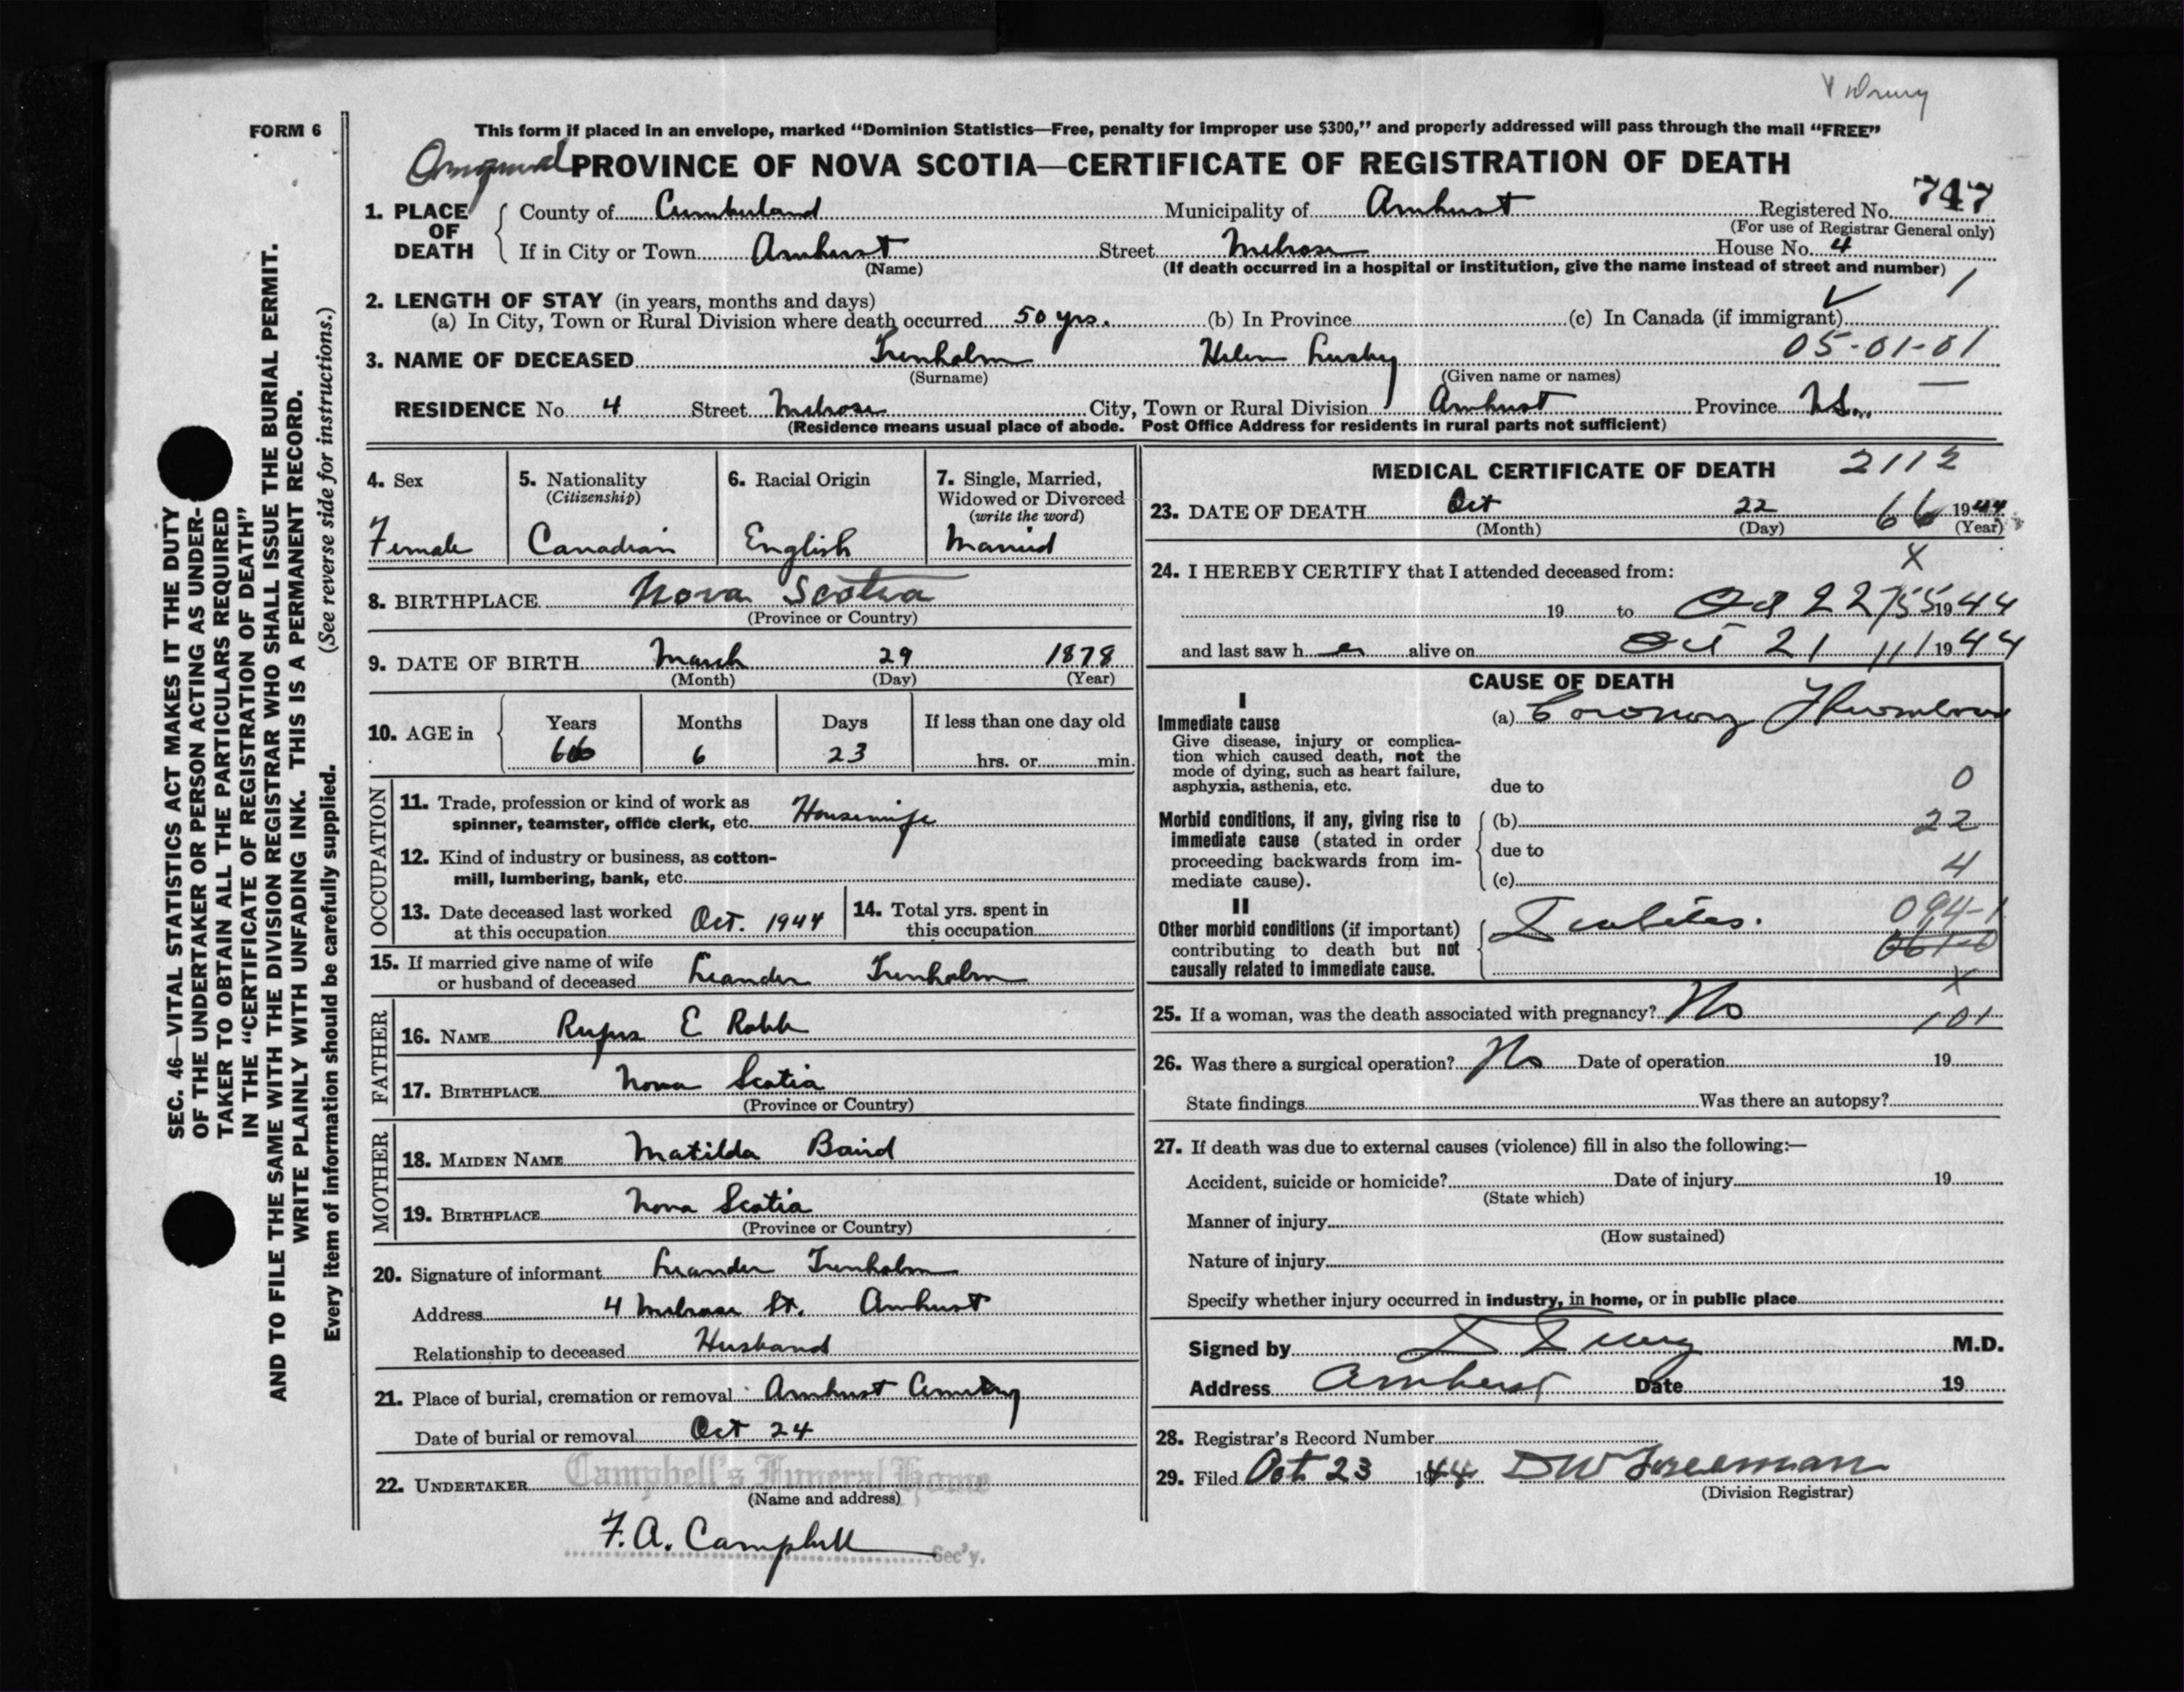 Drury
FORM 6
This form if placed in an envelope, marked “Dominion Statistics—Free, penalty for improper use $300,” and properly addressed will pass through the mail “FREE”
PROVINCE OF NOVA SCOTIA—CERTIFICATE OF REGISTRATION OF DEATH
747
1. PLACE OF DEATH
County of Cumberland Municipality of Amherst Registered No.
(For use of Registrar General only)
If in City or Town Amherst Street Melrose House No. 4
(Name) (If death occurred in a hospital or institution, give the name instead of street and number)
1
2. LENGTH OF STAY (in years, months and days)
(a) In City, Town or Rural Division where death occurred 50 yrs. (b) In Province (c) In Canada (if immigrant)
05-01-01
3. NAME OF DECEASED Trenholm Helen Lusby
(Surname) (Given name or names)
RESIDENCE No. 4 Street Melrose City, Town or Rural Division Amherst Province N.S.
(Residence means usual place of abode. Post Office Address for residents in rural parts not sufficient)
4. Sex
Female
5. Nationality
(Citizenship)
Canadian
6. Racial Origin
English
7. Single, Married,
Widowed or Divorced
(write the word)
Married
8. BIRTHPLACE Nova Scotia
(Province or Country)
9. DATE OF BIRTH March 29 1878
(Month) (Day) (Year)
10. AGE in
Years Months Days If less than one day old
66 6 23 hrs. or min.
OCCUPATION
11. Trade, profession or kind of work as
spinner, teamster, office clerk, etc. Housewife
12. Kind of industry or business, as cotton-
mill, lumbering, bank, etc.
13. Date deceased last worked
at this occupation Oct. 1944
14. Total yrs. spent in
this occupation
15. If married give name of wife
or husband of deceased Leander Trenholm
FATHER
16. NAME Rufus E Robb
17. BIRTHPLACE Nova Scotia
(Province or Country)
MOTHER
18. MAIDEN NAME Matilda Baird
19. BIRTHPLACE Nova Scotia
(Province or Country)
20. Signature of informant Leander Trenholm
Address 4 Melrose St. Amherst
Relationship to deceased Husband
21. Place of burial, cremation or removal Amherst Cemetery
Date of burial or removal Oct 24
22. UNDERTAKER Campbell's Funeral Home
(Name and address)
F. A. Campbell Sec'y.
MEDICAL CERTIFICATE OF DEATH 2112
23. DATE OF DEATH Oct 22 66 1944
(Month) (Day) (Year)
X
24. I HEREBY CERTIFY that I attended deceased from:
19 to Oct 22 1944
and last saw h er alive on Oct 21 1944
CAUSE OF DEATH
I
Immediate cause
Give disease, injury or complica-
tion which caused death, not the
mode of dying, such as heart failure,
asphyxia, asthenia, etc.
(a) Coronary Thrombosis
due to
0
Morbid conditions, if any, giving rise to
immediate cause (stated in order
proceeding backwards from im-
mediate cause).
(b) 22
due to
4
(c)
II
Other morbid conditions (if important)
contributing to death but not
causally related to immediate cause.
Diabetes. 094-1
061-0
X
25. If a woman, was the death associated with pregnancy? No 101
26. Was there a surgical operation? No Date of operation 19
State findings Was there an autopsy?
27. If death was due to external causes (violence) fill in also the following:—
Accident, suicide or homicide? Date of injury 19
(State which)
Manner of injury
(How sustained)
Nature of injury
Specify whether injury occurred in industry, in home, or in public place
Signed by D Drury M.D.
Address Amherst Date 19
28. Registrar's Record Number
29. Filed Oct 23 1944 DW Freeman
(Division Registrar)
SEC. 46—VITAL STATISTICS ACT MAKES IT THE DUTY
OF THE UNDERTAKER OR PERSON ACTING AS UNDER-
TAKER TO OBTAIN ALL THE PARTICULARS REQUIRED
IN THE “CERTIFICATE OF REGISTRATION OF DEATH”
AND TO FILE THE SAME WITH THE DIVISION REGISTRAR WHO SHALL ISSUE THE BURIAL PERMIT.
WRITE PLAINLY WITH UNFADING INK. THIS IS A PERMANENT RECORD.
Every item of information should be carefully supplied. (See reverse side for instructions.)